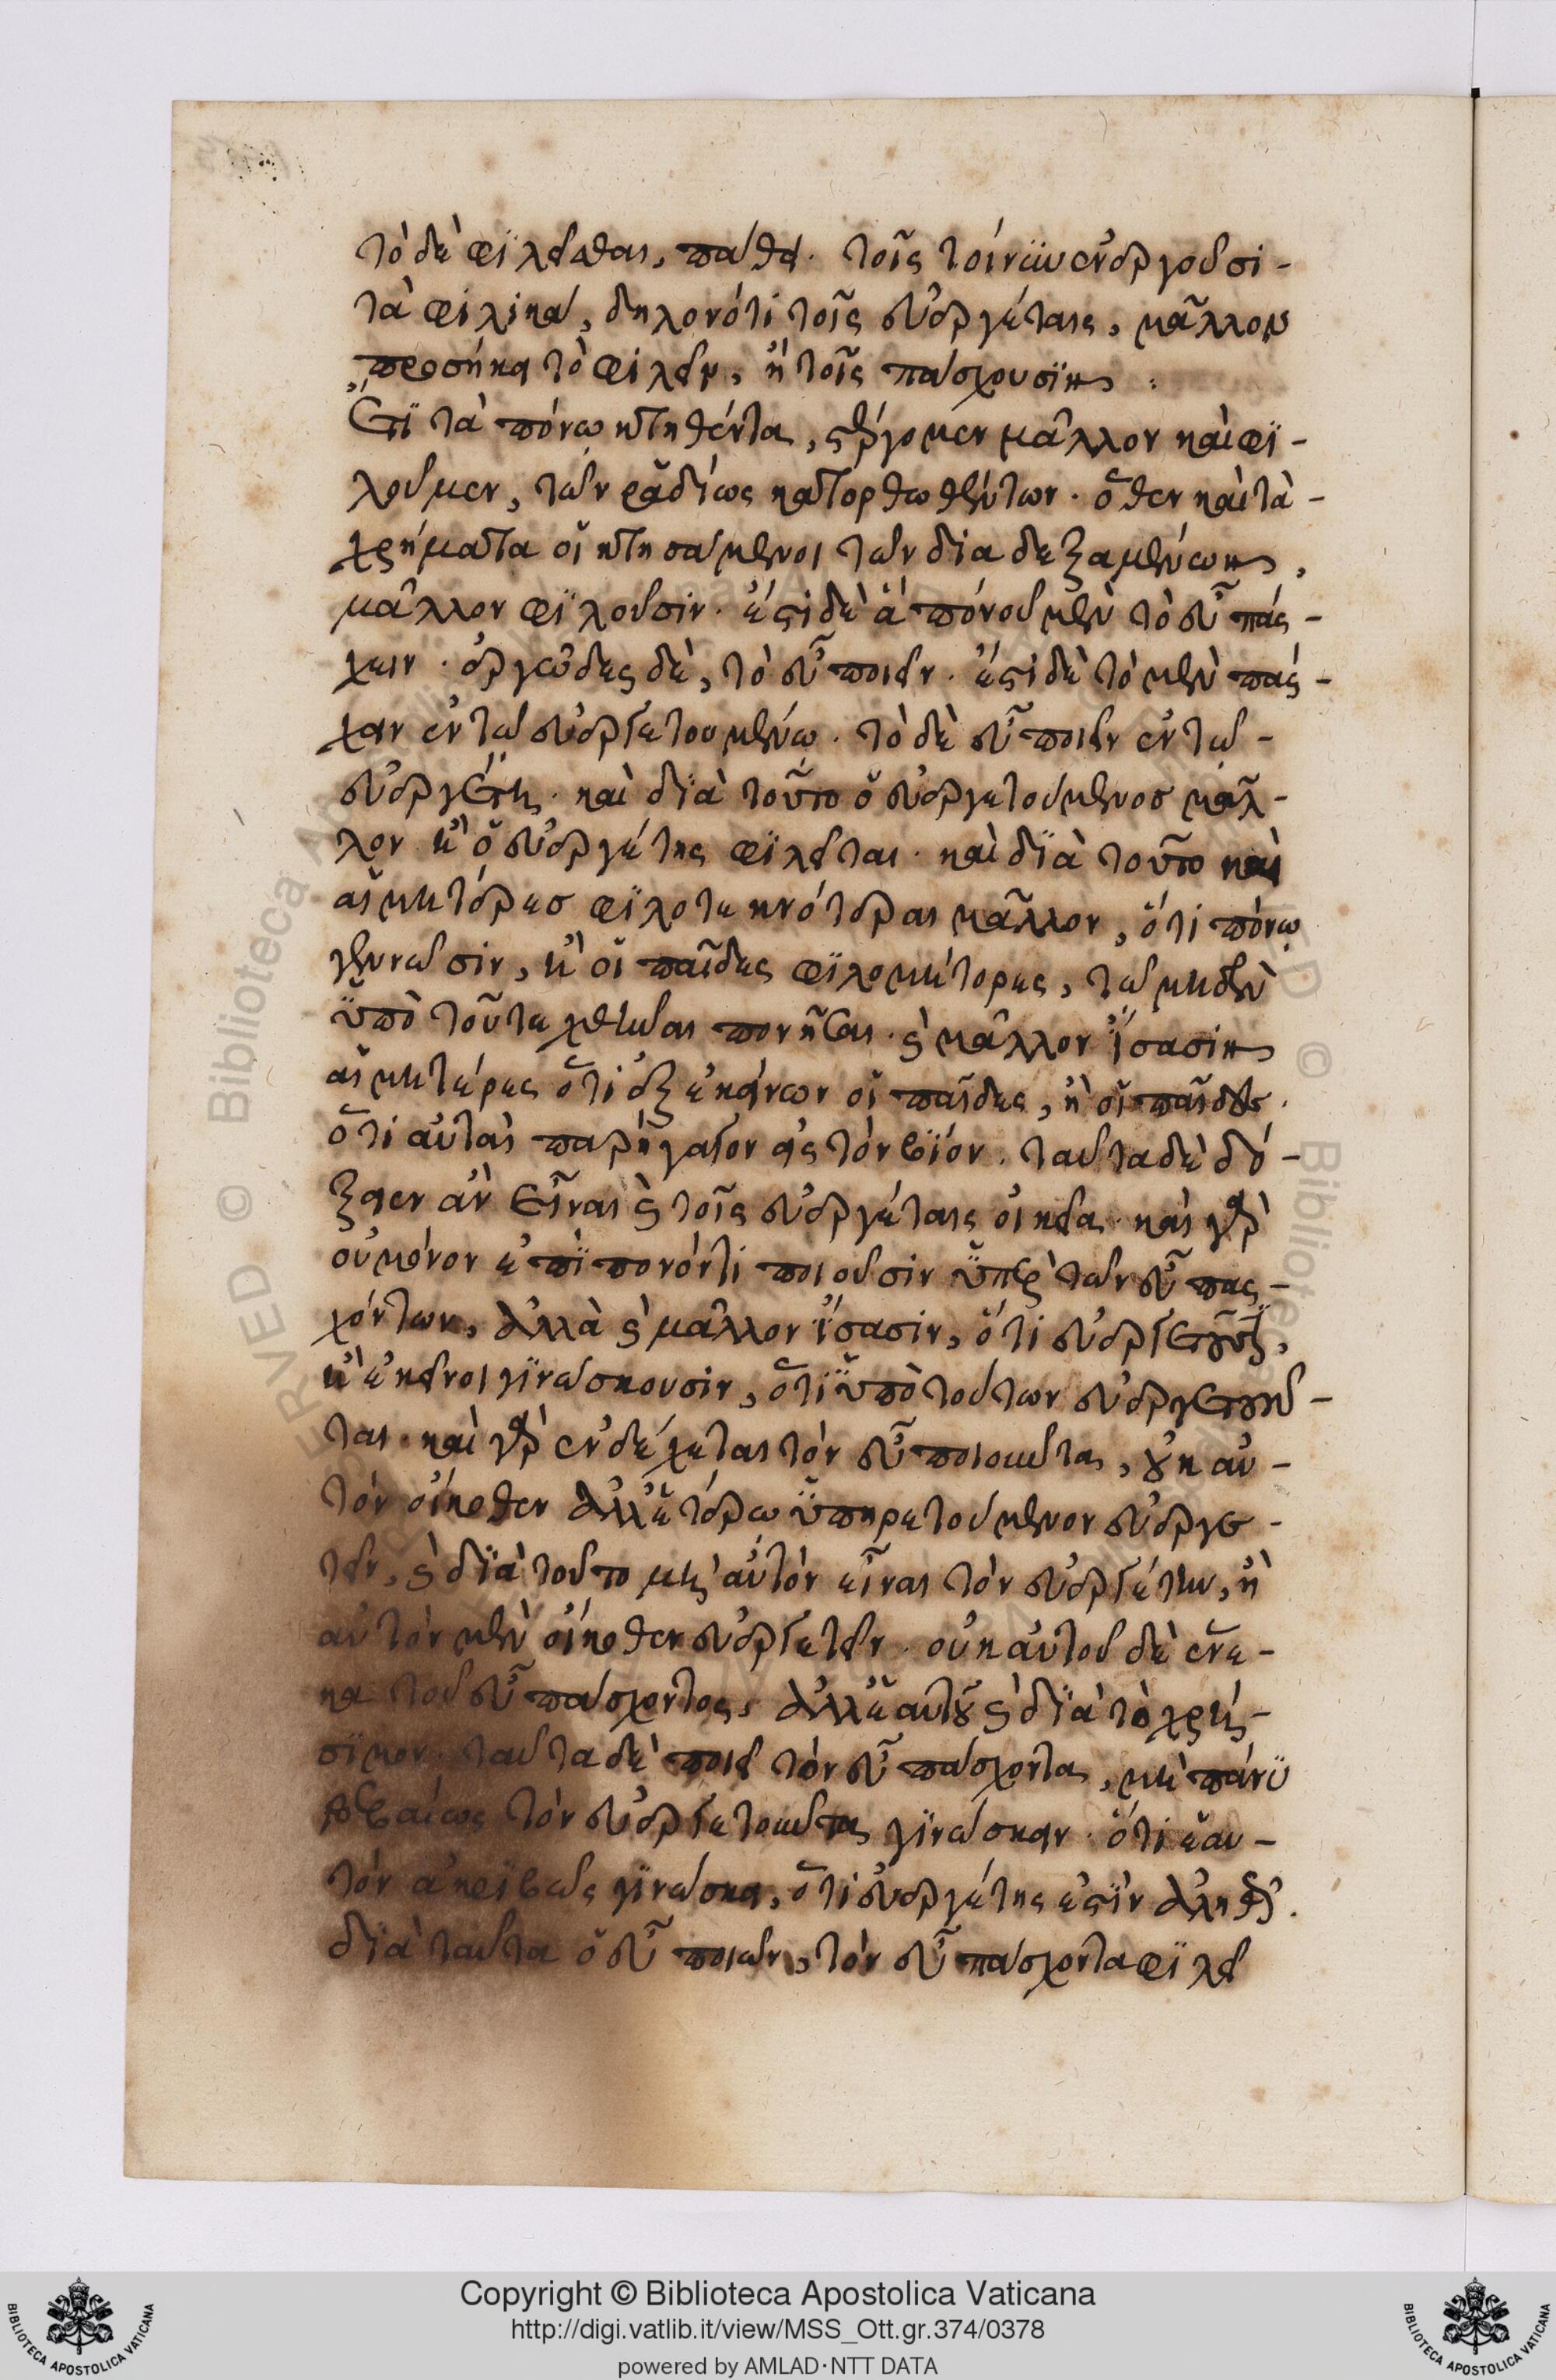 τὸ δὲ φιλεῖσθαι, πάθει. τοῖς τοίνυν ἐνεργοῦσι-
τὰ φιλικὰ, δηλονότι τοῖς εὐεργέταις, μᾶλλον
προσήκει τὸ φιλεῖν, ἢ τοῖς πάσχουσιν :
Ἔτι τὰ πόνω κτηθέντα, στέργομεν μᾶλλον καὶ φι-
λοῦμεν, τῶν ῥαδίως κατορθωθέντων. ὅθεν καὶ τὰ-
χρήματα οἱ κτησάμενοι τῶν διαδεξαμένων,
μᾶλλον φιλοῦσιν. ἔστι δὲ ἄπονον μὲν τὸ εὖ πάσ-
χειν. ἐργῶδες δὲ, τὸ εὖ ποιεῖν. ἔστι δὲ τὸ μὲν πάσ-
χειν ἐν τῶ εὐεργετουμένω. τὸ δὲ εὖ ποιεῖν ἐν τῶ-
εὐεργέτη. καὶ διὰ τοῦτο ὁ εὐεργετούμενος μᾶλ-
λον ἢ ὁ εὐεργέτης φιλεῖται. καὶ διὰ τοῦτο καὶ
αἱ μητέρες φιλοτεκνότεραι μᾶλλον, ὅτι πόνω
γεννῶσιν, ἢ οἱ παῖδες φιλομήτορες, τῶ μηδὲν
ὑπὸ τοῦ τεχθῆναι πονῆσαι. καὶ μᾶλλον ἴσασιν
αἱ μητέρες ὅτι ἐξ ἐκείνων οἱ παῖδες, ἢ οἱ παῖδες.
ὅτι αὐταὶ παρήγαγον εἰς τὸν βίον. ταῦτα δὲ δό-
ξειεν ἂν εἶναι καὶ τοῖς εὐεργέταις οἰκεῖα. καὶ γὰρ
οὐ μόνον ἐπίπονόν τι ποιοῦσιν ὑπὲρ τῶν εὖ πασ-
χόντων, ἀλλὰ καὶ μᾶλλον ἴσασιν, ὅτι εὐεργετοῦσιν,
ἢ ἐκεῖνοι γινώσκουσιν, ὅτι ὑπὸ τούτων εὐεργετοῦν-
ται. καὶ γὰρ ἐνδέχεται τὸν εὖ ποιοῦντα, οὐκ αὐ-
τὸν οἴκοθεν ἀλλ' ἑτέρω ὑπηρετούμενον εὐεργε-
τεῖν, καὶ διὰ τοῦτο μὴ αὐτὸν εἶναι τὸν εὐεργέτην, ἢ
αὐτὸν μὲν οἴκοθεν εὐεργετεῖν. οὐκ αὐτοῦ δὲ ἕνε-
κα τοῦ εὖ πάσχοντος, ἀλλ' ἑαυτοῦ καὶ διὰ τὸ χρή-
σιμον. ταῦτα δὲ ποιεῖ τὸν εὖ πάσχοντα, μὴ πάνυ
βεβαίως τὸν εὐεργετοῦντα γινώσκειν. ὅτι ἑαυ-
τὸν ἀκριβῶς γινώσκει, ὅτι εὐεργέτης ἐστὶν ἀληθής.
διὰ ταῦτα ὁ εὖ ποιῶν, τὸν εὖ πάσχοντα φιλεῖ
Copyright © Biblioteca Apostolica Vaticana
http://digi.vatlib.it/view/MSS_Ott.gr.374/0378
powered by AMLAD·NTT DATA
BIBLIOTECA APOSTOLICA VATICANA
BIBLIOTECA APOSTOLICA VATICANA